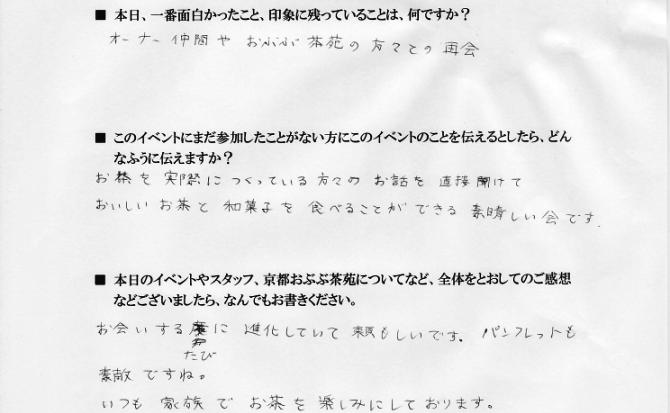 ■ 本日、一番面白かったこと、印象に残っていることは、何ですか？
オーナー仲間や おぶぶ茶苑の 方々との 再会
■ このイベントにまだ参加したことがない方にこのイベントのことを伝えるとしたら、どん
なふうに伝えますか？
お茶を 実際に つくっている 方々の お話を 直接 聞けて
おいしい お茶と 和菓子を 食べることが できる 素晴しい 会です.
■ 本日のイベントやスタッフ、京都おぶぶ茶苑についてなど、全体をとおしてのご感想
などございましたら、なんでもお書きください。
お会いする に 進化していて 頼もしいです. パンフレットも
たび
素敵 ですね。
いつも 家族 で お茶を 楽しみにしております。